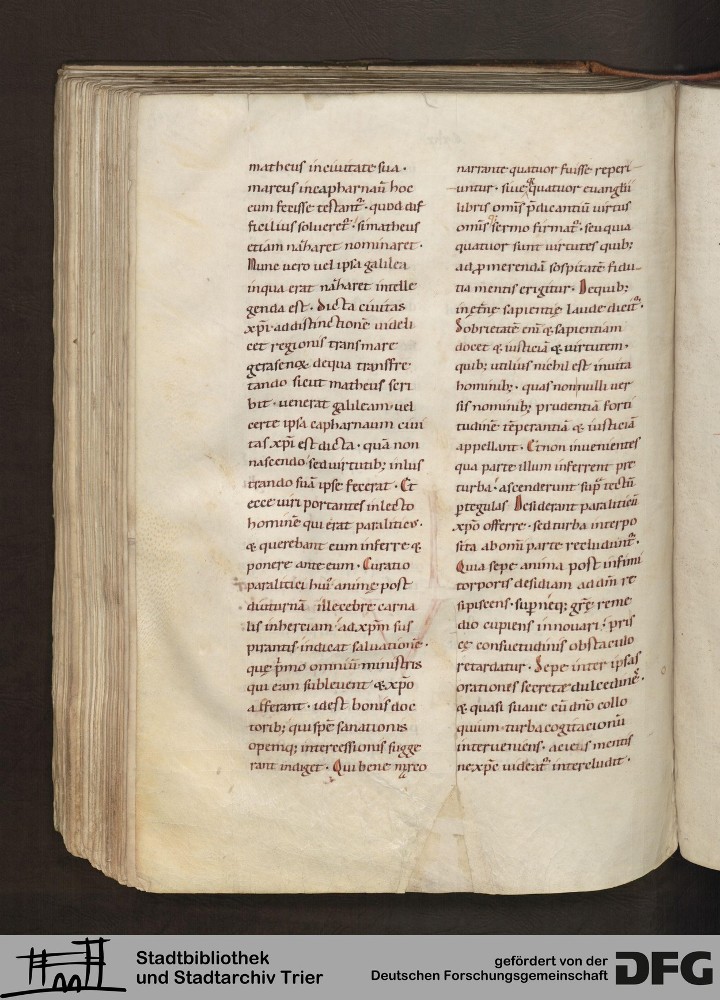 matheus in civitate sua ·
marcus in capharnaū hoc
eum fecisse testant᷑ · quod dif
ficilius solveret᷑ · si matheus
etiam naȝaret nominaret ·
Nunc vero vel ipsa galilea
in qua erat naȝaret intelle
genda est · dicta civitas
xp̄i · ad distinctionē videli
cet regionis trans mare
gerasenoꝝ · de qua transfre
tando sicut matheus scri
bit · venerat galileam · vel
certe ipsa capharnaum civi
tas xp̄i est dicta · quā non
nascendo sed virtutib; inlus
trando suā ipse fecerat · Et
ecce viri portantes in lecto
hominē qui erat paraliticus ·
& querebant eum inferre &
ponere ante eum · Curatio
paralitici hui᷒ animę post
diuturnā illecebrę carna
lis inherciam · ad xp̄m sus
pirantis indicat salvationē ·
quę p̄mo omniū ministris
qui eam sublevent & xp̄o
afferant · id est bonis doc
torib; qui spē sanationis
opemq; intercessionis sugge
rant indiget · Qui bene m̄reo
narrante quatuor fuisse reperi
untur · sive q̄a quatuor evanglii
libris om̄is p̄dicantiū virtus
om̄is sermo firmat᷑ · seu quia
quatuor sunt virtutes quib;
ad ꝓmerendā sospitatē fidu
tia mentis erigitur · De quib;
in ęt̄nę sapientię laude dicit᷑ ·
Sobrietatē eni & sapientiam
docet & iusticiā & virtutem ·
quib; utilius nichil est in vita
hominib; · quas nonnulli ver
sis nominib; prudentiā forti
tudinē tēperantiā & iusticiā
appellant · Et non invenientes
qua parte illum inferrent prę
turba · ascenderunt sup̄ tectū
ꝑ tegulas Desiderant paraliticū
xp̄o offerre · sed turba interpo
sita ab om̄i parte recludunt᷑ ·
Quia sepe anima post infimi
corporis desidiam ad dm̄ re
sipiscens · supnęq; grę reme
dio cupiens innovari · pris
cę consuetudinis obstaculo
retardatur · Sepe inter ipsas
orationes secretę dulcedinē ·
& quasi suave cū dn̄o collo
quium · turba cogitacionū
interveniens · aciem mentis
ne xp̄c videat᷑ intercludit ·
Stadtbibliothek
und Stadtarchiv Trier
gefördert von der
Deutschen Forschungsgemeinschaft
DFG